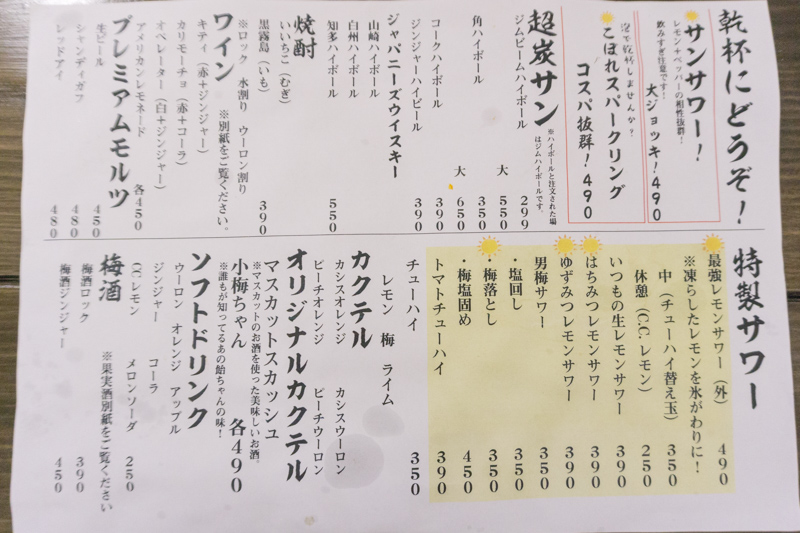 乾杯にどうぞ！
サンサワー！
レモン×ペッパーの相性抜群！
飲みすぎ注意です！
大ジョッキ！490
泡で乾杯しませんか？
こぼれスパークリング
コスパ抜群！490
超炭サン
※ハイボールと注文された場
はジムハイボールです。
ジムビームハイボール 299
大 550
角ハイボール 350
大 650
コークハイボール 390
ジンジャーハイビール 390
ジャパニーズウイスキー
山崎ハイボール
白州ハイボール
知多ハイボール 550
焼酎
いいちこ（むぎ）
黒霧島（いも） 390
※ロック 水割り ウーロン割り
ワイン
※別紙をご覧ください。
キティ（赤＋ジンジャー）
オペレーター（白＋ジンジャー）
カリモーチョ（赤＋コーラ）
アメリカンレモネード 各450
プレミアムモルツ
生ビール 450
シャンディガフ 480
レッドアイ 480
特製サワー
最強レモンサワー（外） 490
※凍らしたレモンを氷がわりに！
中（チューハイ替え玉） 350
休憩（C.C.レモン） 250
いつもの生レモンサワー 390
はちみつレモンサワー 390
ゆずみつレモンサワー 390
男梅サワー 350
・塩回し 350
・梅落とし 350
・梅塩固め 450
トマトチューハイ 390
チューハイ 350
レモン 梅 ライム
カクテル
カシスオレンジ カシスウーロン
ピーチオレンジ ピーチウーロン
オリジナルカクテル
マスカットスカッシュ
※マスカットのお酒を使った美味しいお酒。
小梅ちゃん 各490
※誰もが知ってるあの飴ちゃんの味！
ソフトドリンク
ウーロン オレンジ アップル
ジンジャー コーラ
CCレモン メロンソーダ 250
梅酒
※果実酒別紙をご覧ください
梅酒ロック 390
梅酒ジンジャー 450